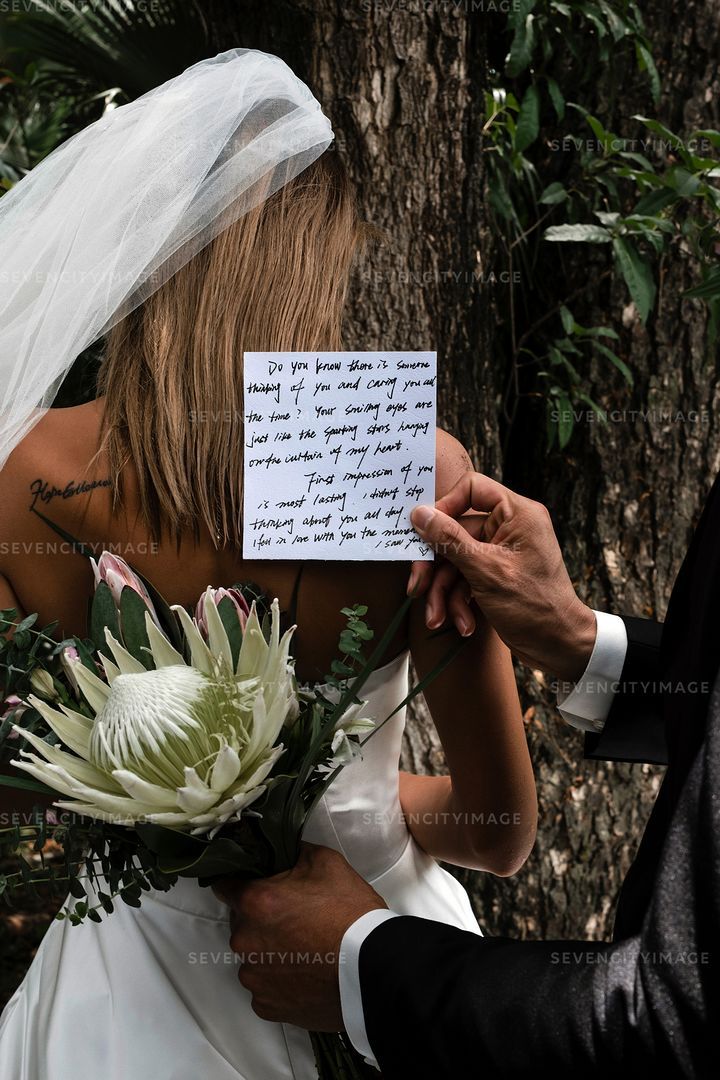 Do you know there is someone
thinking of you and caring you all
the time? Your smiling eyes are
just like the sparking stars hanging
on the curtain of my heart.
First impression of you
is most lasting. i didn't stop
thinking about you all day.
i fell in love with you the moment
i saw you
Hope
SEVENCITYIMAGE